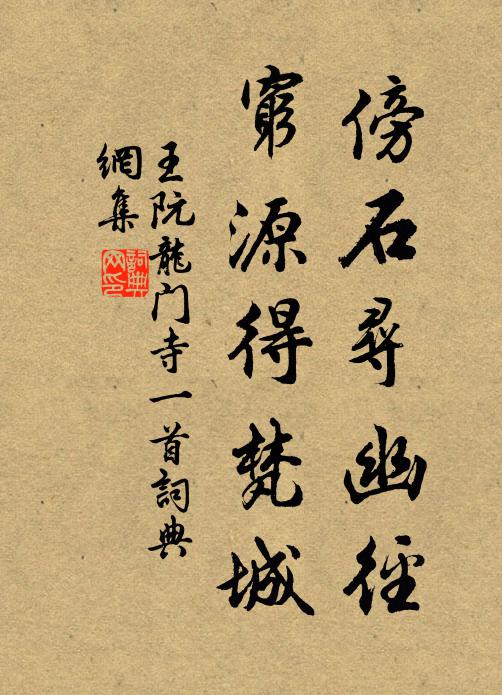 傍石尋幽徑
窮源得梵城
王阮龍門寺一首詞典
網集
詞典
网印